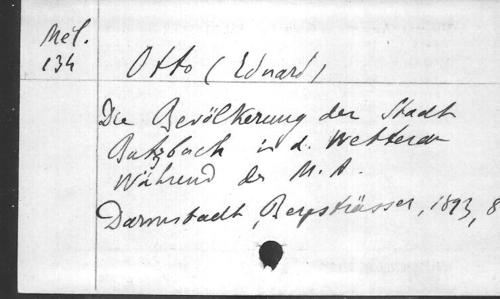 Mél.
134
Otto (Eduard)
Die Bevölkerung der Stadt
Butzbach in d. Wetterau
während des M. A.
Darmstadt, Bergsträsser, 1893, 8